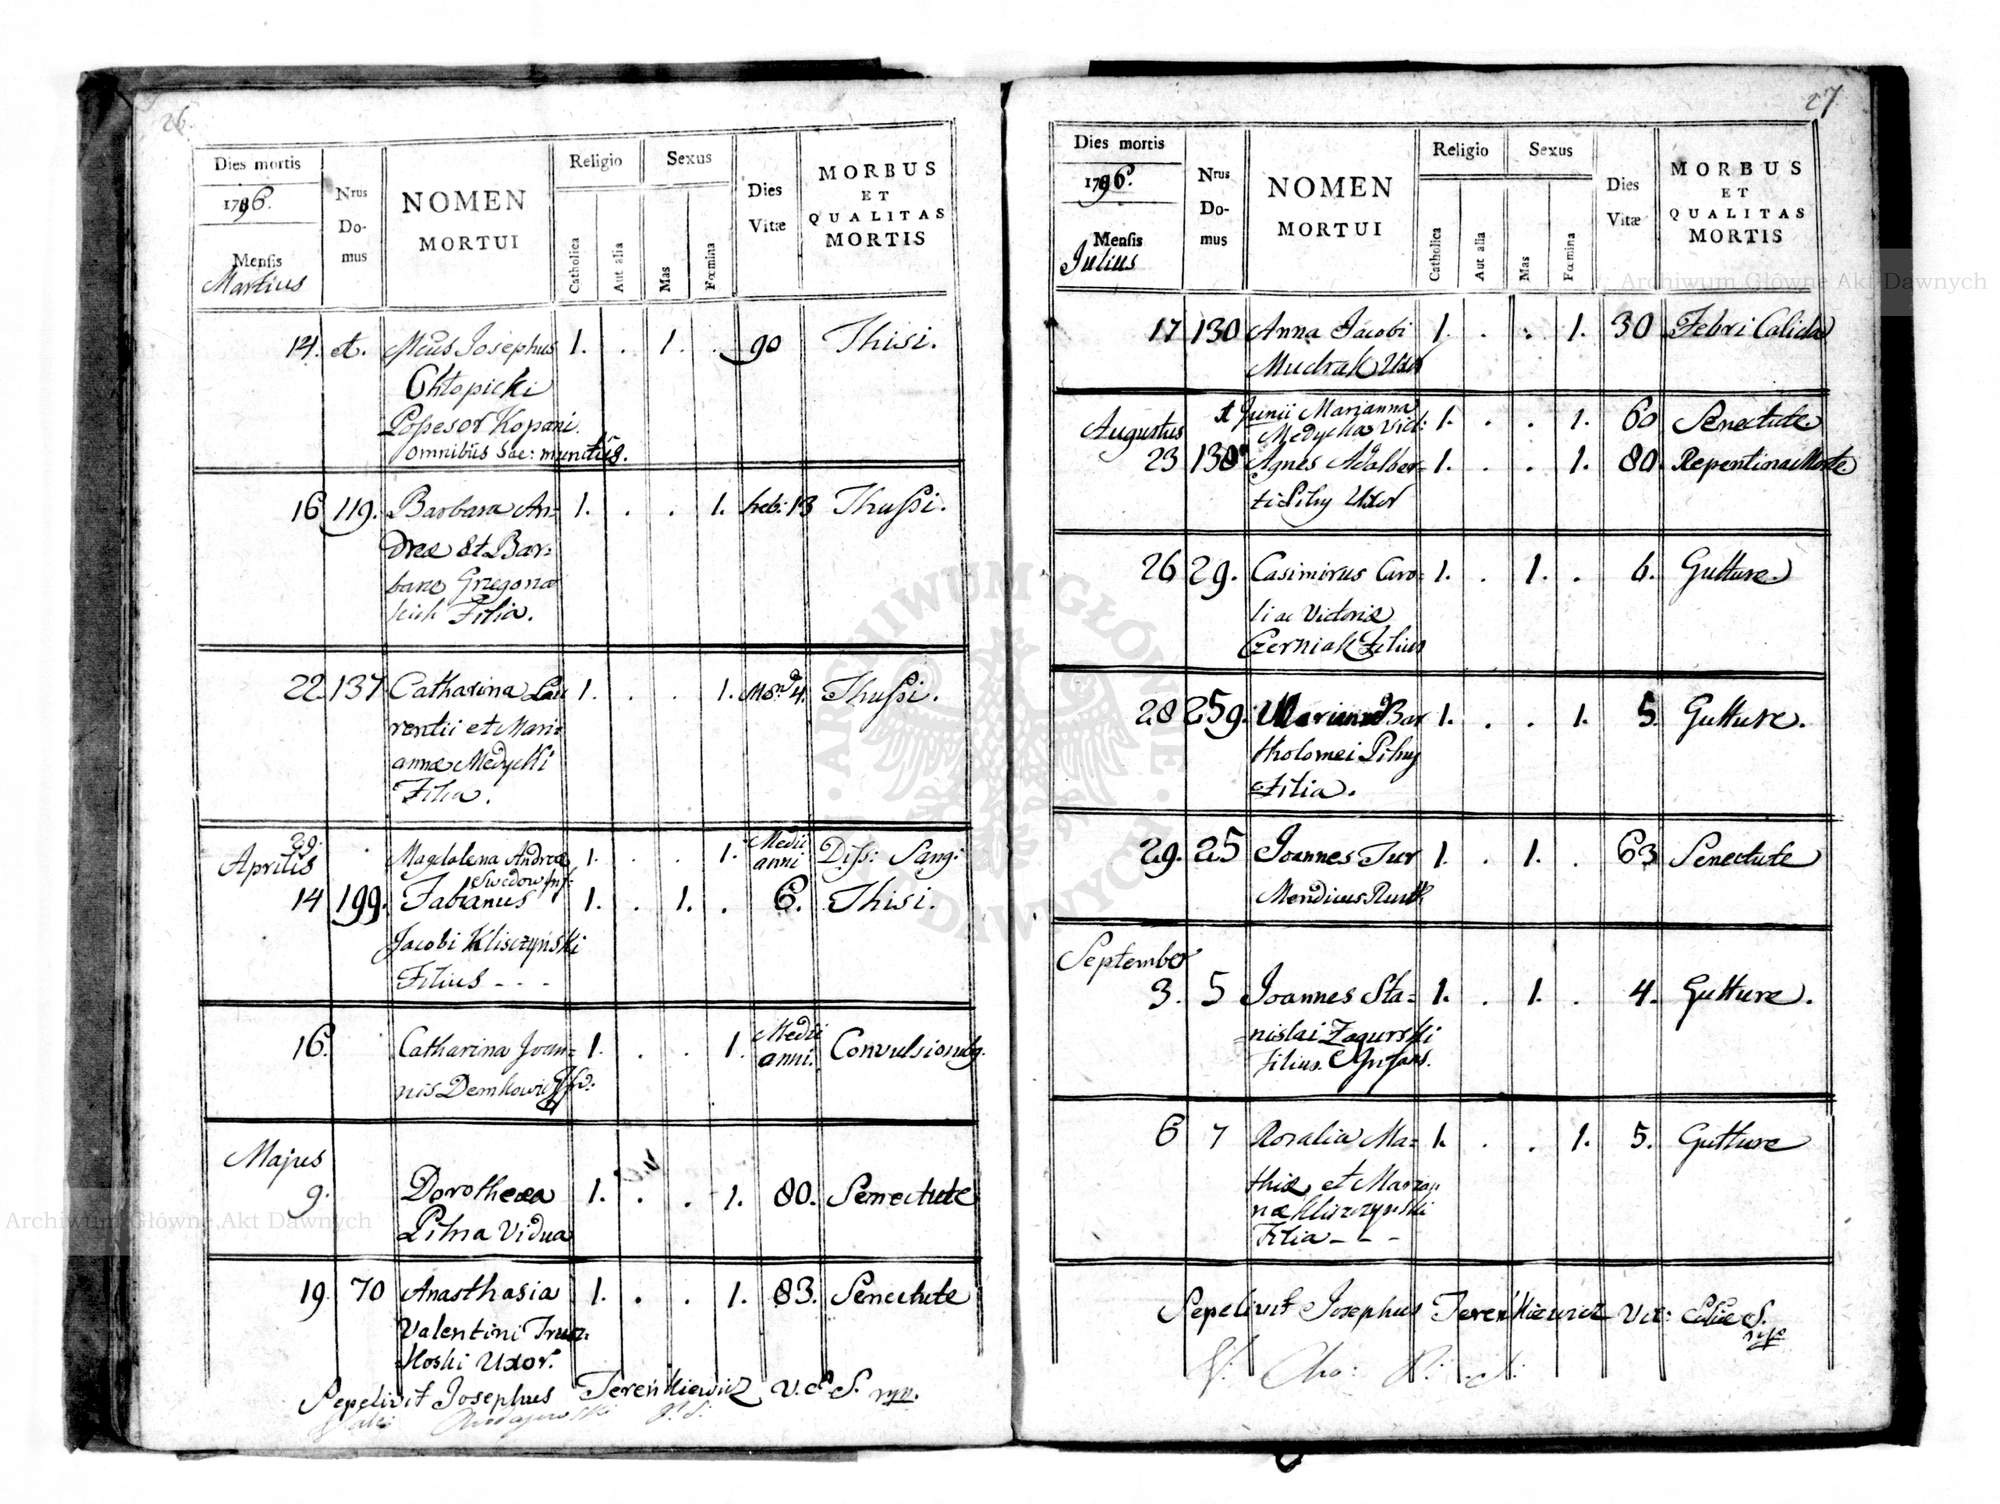 26.
Dies mortis
1796.
Mensis
Martius
Nrus
Do-
mus
NOMEN
MORTUI
Religio
Catholica
Aut alia
Sexus
Mas
Fœmina
Dies
Vitæ
MORBUS
ET
QUALITAS
MORTIS
14. Josephus 1. . 1. . 90 Thisi.
Chłopicki
Possesor Kopani
omnibus Sac: munitus.
16 119. Barbara An= 1. . . 1. heb: 13 Thussi.
dreæ et Bar=
baræ Grzegorza
Filia.
22 137 Catharina Lau 1. . . 1. 4. Thussi.
rentii et Mari=
annæ Medycki
Filia.
29. . Magdalena Andreæ 1. . . 1. Medii anni Diss: Sang:
Swedow Inf:
Aprilis
14 199. Fabianus 1. . 1. . 6. Thisi.
Jacobi Kliszczyński
Filius - - -
16. Catharina Joan= 1. . . 1. Medii anni. Convulsionib9.
nis Demkowicz
Majus
9. Dorothea 1. . . 1. 80. Senectute
Pihra Vidua
19. 70 Anasthasia 1. . . 1. 83. Senectute
Valentini Trusz=
Uxor.
Sepelivit Josephus Tereńkiewicz V. C. S. mp.
27.
Dies mortis
1796.
Mensis
Julius
Nrus
Do-
mus
NOMEN
MORTUI
Religio
Catholica
Aut alia
Sexus
Mas
Fœmina
Dies
Vitæ
MORBUS
ET
QUALITAS
MORTIS
17 130 Anna Jacobi 1. . . 1. 30 Febri Calida
Mudrak Uxor
Junii Marianna 1. . . 1. 60 Senectute
Medycka Vid:
Augustus
23 138 Agnes Adalber= 1. . . 1. 80. Repentina Morte
ti Pihuy Uxor
26 29. Casimirus Caro= 1. . 1. . 6. Gutture.
li ac Victoriæ
Czerniak Filius
28 259. Marianna Bar 1. . . 1. 5. Gutture.
tholomei Pihuy
Filia.
29. 25 Joannes Tur 1. . 1. . 63 Senectute
Mendicus Ruth.
September
3. 5 Joannes Sta= 1. . 1. . 4. Gutture.
nislai Zagurski
Filius. Infans.
6 7 Rosalia Ma= 1. . . 1. 5. Gutture
thiæ et Marian
næ Kliszczynski
Filia - - -
Sepelivit Josephus Tereńkiewicz Vic: S.
mp
Archiwum Główne Akt Dawnych
Archiwum Główne Akt Dawnych
ARCHIWUM GŁÓWNE AKT DAWNYCH